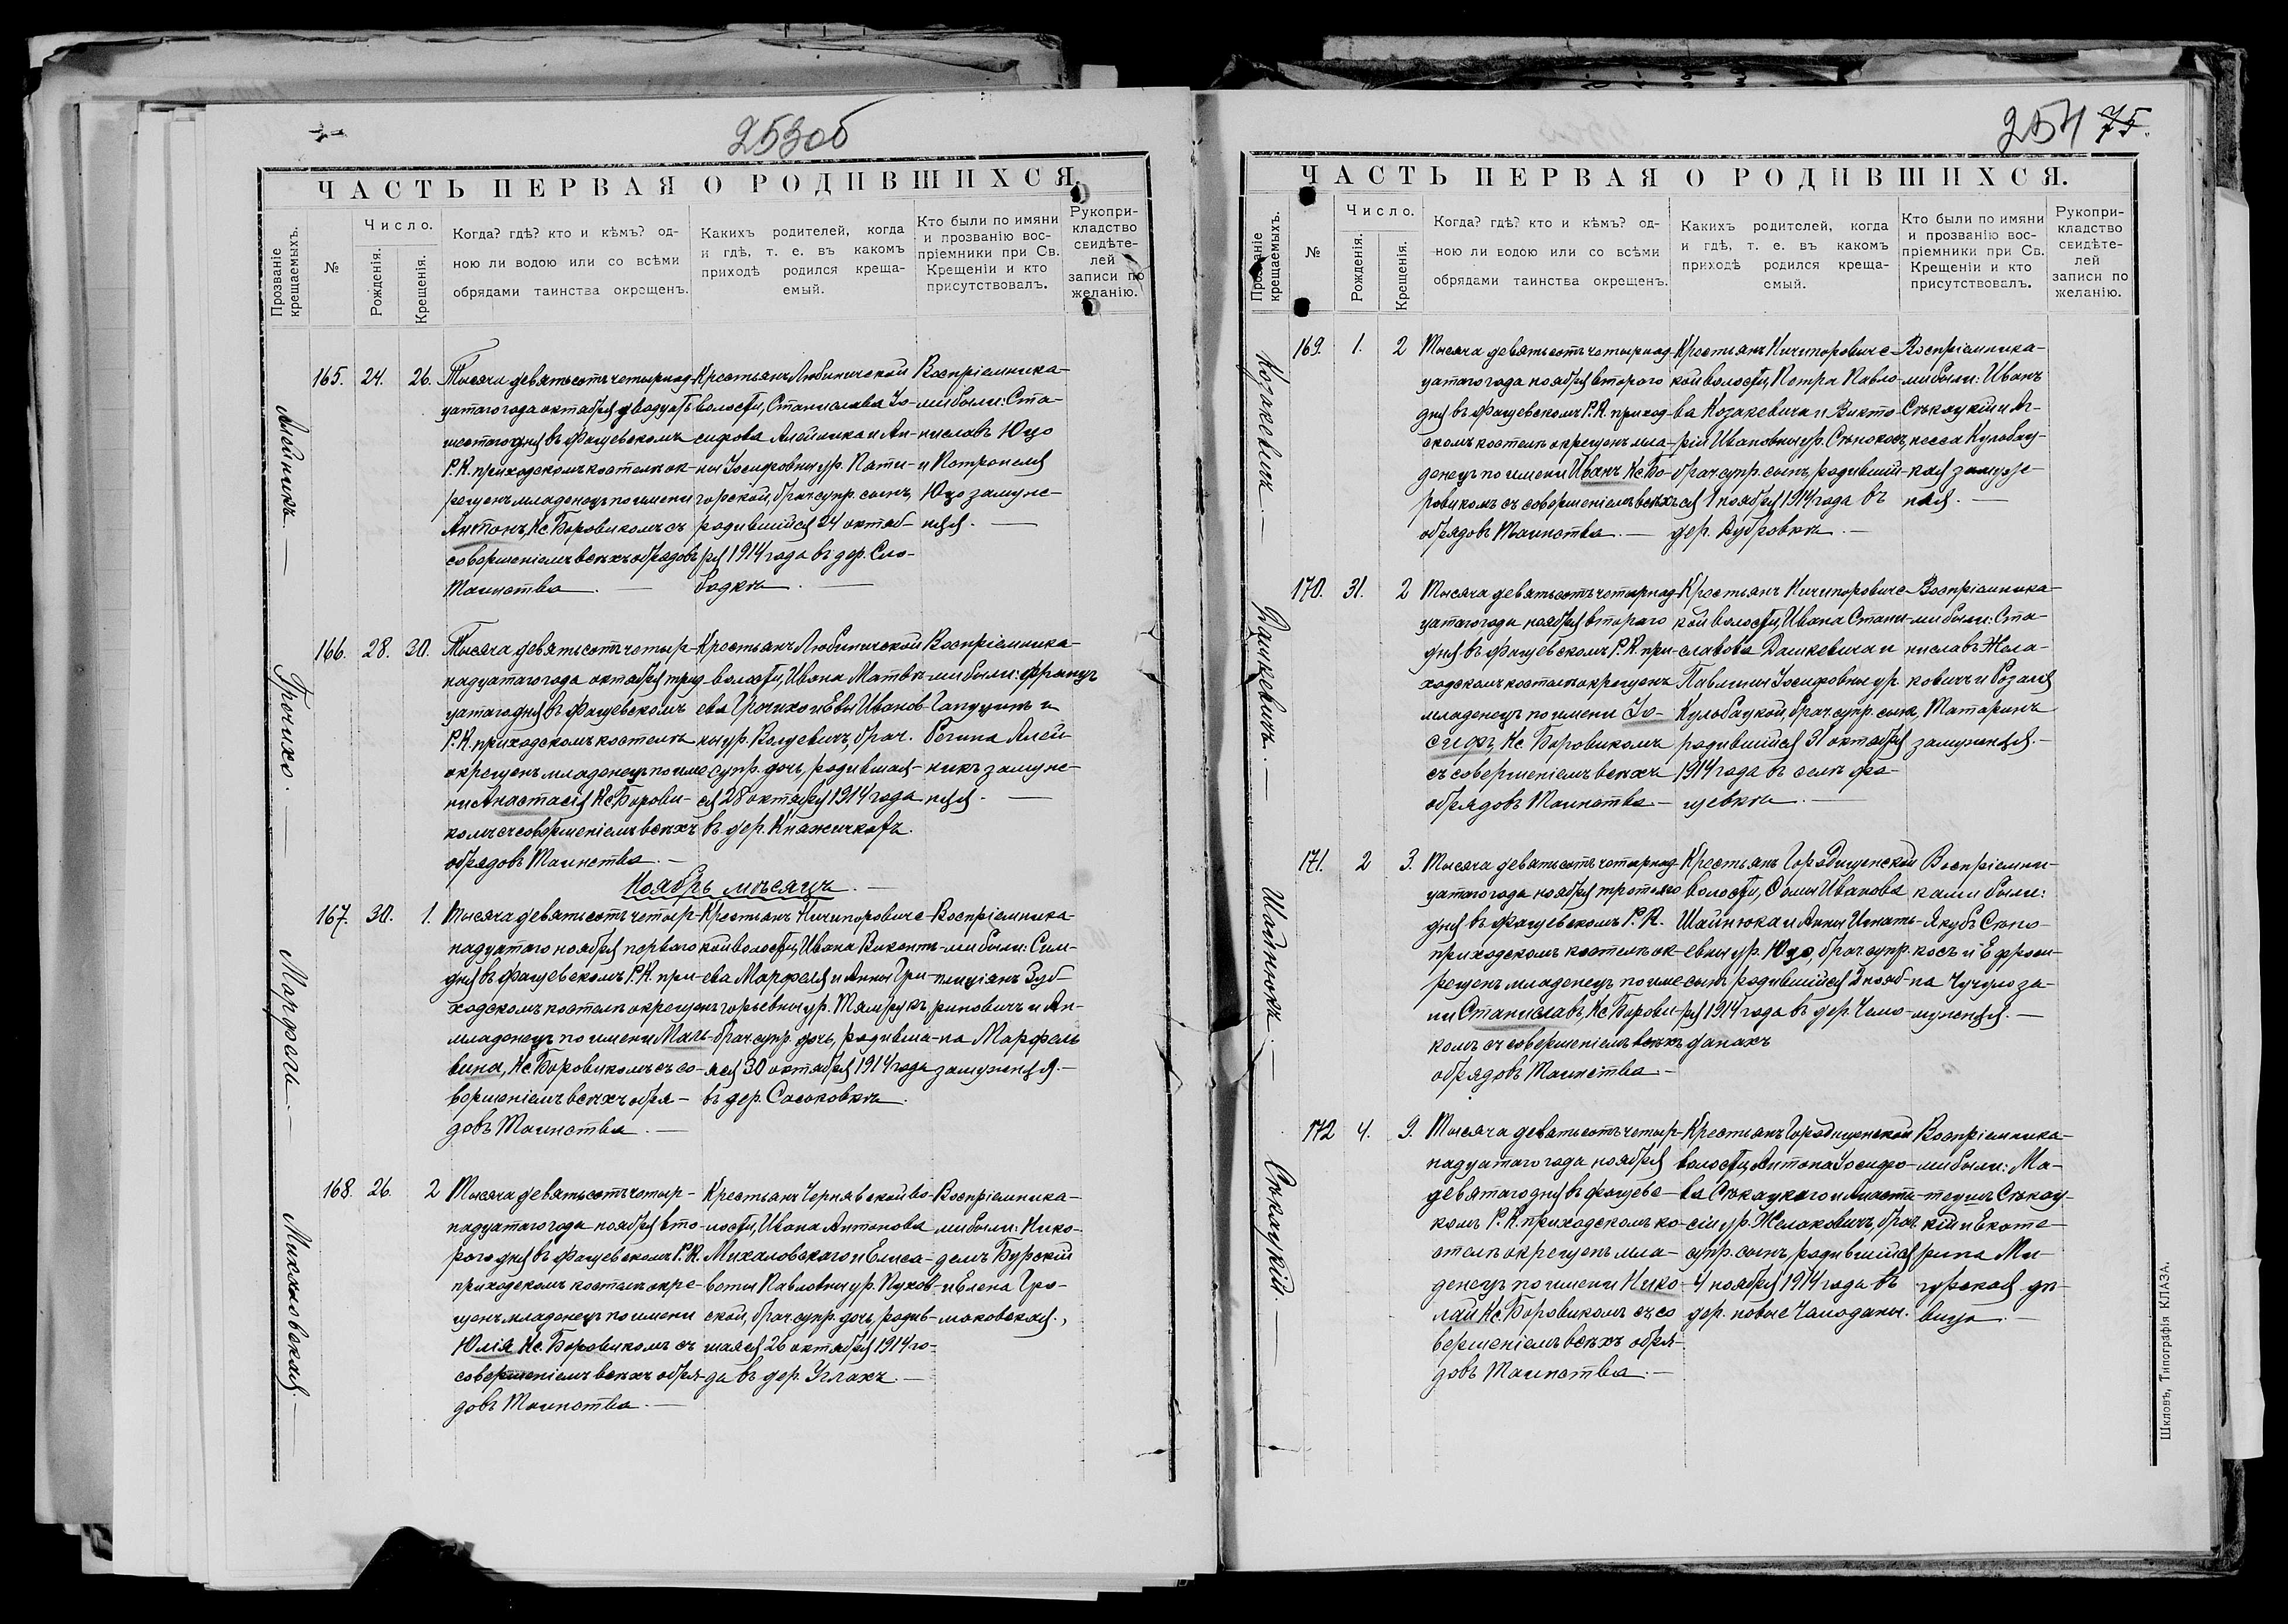 253об
ЧАСТЬ ПЕРВАЯ О РОДИВШИХСЯ.
Прозваніе крещаемыхъ.
№
Число.
Рожденія.
Крещенія.
Когда? гдѣ? кто и кѣмъ? од-
ною ли водою или со всѣми
обрядами таинства окрещенъ.
Какихъ родителей, когда
и гдѣ, т. е. въ какомъ
приходѣ родился креща-
емый.
Кто были по имяни
и прозванію вос-
пріемники при Св.
Крещеніи и кто
присутствовалъ.
Рукопри-
кладство
свидѣте-
лей
записи по
желанію.
Алейникъ.
165. 24. 26.
Тысяча девятьсотъ четырнад-
цатаго года октября двадцать
шестаго дня въ Фащевскомъ
Р.К. приходскомъ костелѣ ок-
рещенъ младенецъ по имени
Антонъ, Кс. Боровикомъ съ
совершеніемъ всѣхъ обрядовъ
Таинства.
Крестьянъ Любиничской
волости, Станислава Іо-
сифова Алейника и Ан-
ны Іосифовны ур. Пяти-
горской, брач. супр. сынъ,
родившійся 24 октяб-
ря 1914 года въ дер. Сло-
бодкѣ.
Воспріемника-
ми были: Ста-
ниславъ Юцо
и Петронеля
Юцо замуж-
няя.
Грочихо.
166. 28. 30.
Тысяча девятьсотъ четыр-
надцатаго года октября трид-
цатаго дня въ Фащевскомъ
Р.К. приходскомъ костелѣ
окрещенъ младенецъ по име-
ни Анастасія Кс. Борови-
комъ съ совершеніемъ всѣхъ
обрядовъ Таинства.
Крестьянъ Любиничской
волости, Ивана Матвѣ-
ева Грочихо и Евы Иванов-
ны ур. Волцевичъ, брач.
супр. дочь, родившая-
ся 28 октября 1914 года
въ дер. Княжичкахъ.
Воспріемника-
ми были: Францъ
Гапуцинъ и
Регина Алей-
никъ замуж-
няя.
Ноябрь мѣсяцъ.
Марфель.
167. 30. 1.
Тысяча девятьсотъ четыр-
надцатаго ноября перваго
дня въ Фащевскомъ Р.К. при-
ходскомъ костелѣ окрещенъ
младенецъ по имени Маль-
вина, Кс. Боровикомъ съ со-
вершеніемъ всѣхъ обря-
довъ Таинства.
Крестьянъ Ничипоровичс-
кой волости, Ивана Викенть-
ева Марфеля и Анны Гри-
горьевны ур. Тямрукъ
брач. супр. дочь, родивша-
яся 30 октября 1914 года
въ дер. Саськовкѣ.
Воспріемника-
ми были: Сим-
плиціянъ Зуб-
риновичъ и Ан-
на Марфель
замужняя.
Михаловская.
168. 26. 2
Тысяча девятьсотъ четыр-
надцатаго года ноября вто-
рого дня въ Фащевскомъ Р.К.
приходскомъ костелѣ окре-
щенъ младенецъ по имени
Юлія Кс. Боровикомъ съ
совершеніемъ всѣхъ обря-
довъ Таинства.
Крестьянъ Чернявской во-
лости, Ивана Антонова
Михаловскаго и Елиса-
веты Павловны ур. Пухов-
ской, брач. супр. дочь, родив-
шаяся 26 октября 1914 го-
да въ дер. Углахъ.
Воспріемника-
ми были: Нико-
демъ Бурскій
и Елена Гро-
маковская.
254 75.
ЧАСТЬ ПЕРВАЯ О РОДИВШИХСЯ.
Прозваніе крещаемыхъ.
№
Число.
Рожденія.
Крещенія.
Когда? гдѣ? кто и кѣмъ? од-
ною ли водою или со всѣми
обрядами таинства окрещенъ.
Какихъ родителей, когда
и гдѣ, т. е. въ какомъ
приходѣ родился креща-
емый.
Кто были по имяни
и прозванію вос-
пріемники при Св.
Крещеніи и кто
присутствовалъ.
Рукопри-
кладство
свидѣте-
лей
записи по
желанію.
Козакевичъ.
169. 1. 2
Тысяча девятьсотъ четырнад-
цатаго года ноября второго
дня въ Фащевскомъ Р.К. приход-
скомъ костелѣ окрещенъ мла-
денецъ по имени Иванъ Кс. Бо-
ровикомъ съ совершеніемъ всѣхъ
обрядовъ Таинства.
Крестьянъ Ничипоровичс-
кой волости, Петра Павло-
ва Козакевича и Викто-
ріи Ивановны ур. Сѣнокосъ,
брач. супр. сынъ, родивший-
ся 1 ноября 1914 года въ
дер. Дубровкѣ.
Воспріемника-
ми были: Иванъ
Сѣкацкій и Аг-
несса Кульбац-
кая замуж-
няя.
Дашкевичъ.
170. 31. 2
Тысяча девятьсотъ четырнад-
цатаго года ноября второго
дня въ Фащевскомъ Р.К. при-
ходскомъ костелѣ окрещенъ
младенецъ по имени Іо-
сифъ, Кс. Боровикомъ
съ совершеніемъ всѣхъ
обрядовъ Таинства.
Крестьянъ Ничипоровичс-
кой волости, Ивана Стани-
славова Дашкевича и
Павлины Іосифовны ур.
Кульбацкой, брач. супр. сынъ,
родившійся 31 октября
1914 года въ селѣ Фа-
щевкѣ.
Воспріемника-
ми были: Ста-
ниславъ Жела-
ковичъ и Розалія
Татаринъ
замужняя.
Шайнюкъ.
171. 2 3.
Тысяча девятьсотъ четырнад-
цатаго года ноября третяго
дня въ Фащевскомъ Р.К.
приходскомъ костелѣ ок-
рещенъ младенецъ по име-
ни Станиславъ, Кс. Борови-
комъ съ совершеніемъ всѣхъ
обрядовъ Таинства.
Крестьянъ Городищенской
волости, Ѳомы Иванова
Шайнюка и Анны Игнать-
евны ур. Юцо, брач. супр.
сынъ родившійся 2 нояб-
ря 1914 года въ дер. Чемо-
данахъ
Воспріемни-
ками были:
Якубъ Сѣно-
косъ и Ефроси-
на Чучуло за-
мужняя.
Сѣкацкій.
172 4. 9.
Тысяча девятьсотъ четыр-
надцатаго года ноября
девятаго дня въ Фащевс-
комъ Р.К. приходскомъ ко-
стелѣ окрещенъ мла-
денецъ по имени Нико-
лай Кс. Боровикомъ съ со
вершеніемъ всѣхъ обря-
довъ Таинства.
Крестьянъ Городищенской
волости, Антона Іосифо-
ва Сѣкацкаго и Анаста-
сіи ур. Желаковичъ, брач.
супр. сынъ, родившійся
4 ноября 1914 года въ
дер. новые Чамоданы.
Воспріемника-
ми были: Ма-
теушъ Сѣкац-
кій и Екате-
рина Ми-
гурская дѣ-
вица.
Шкловъ, Типографія КЛАЗА.